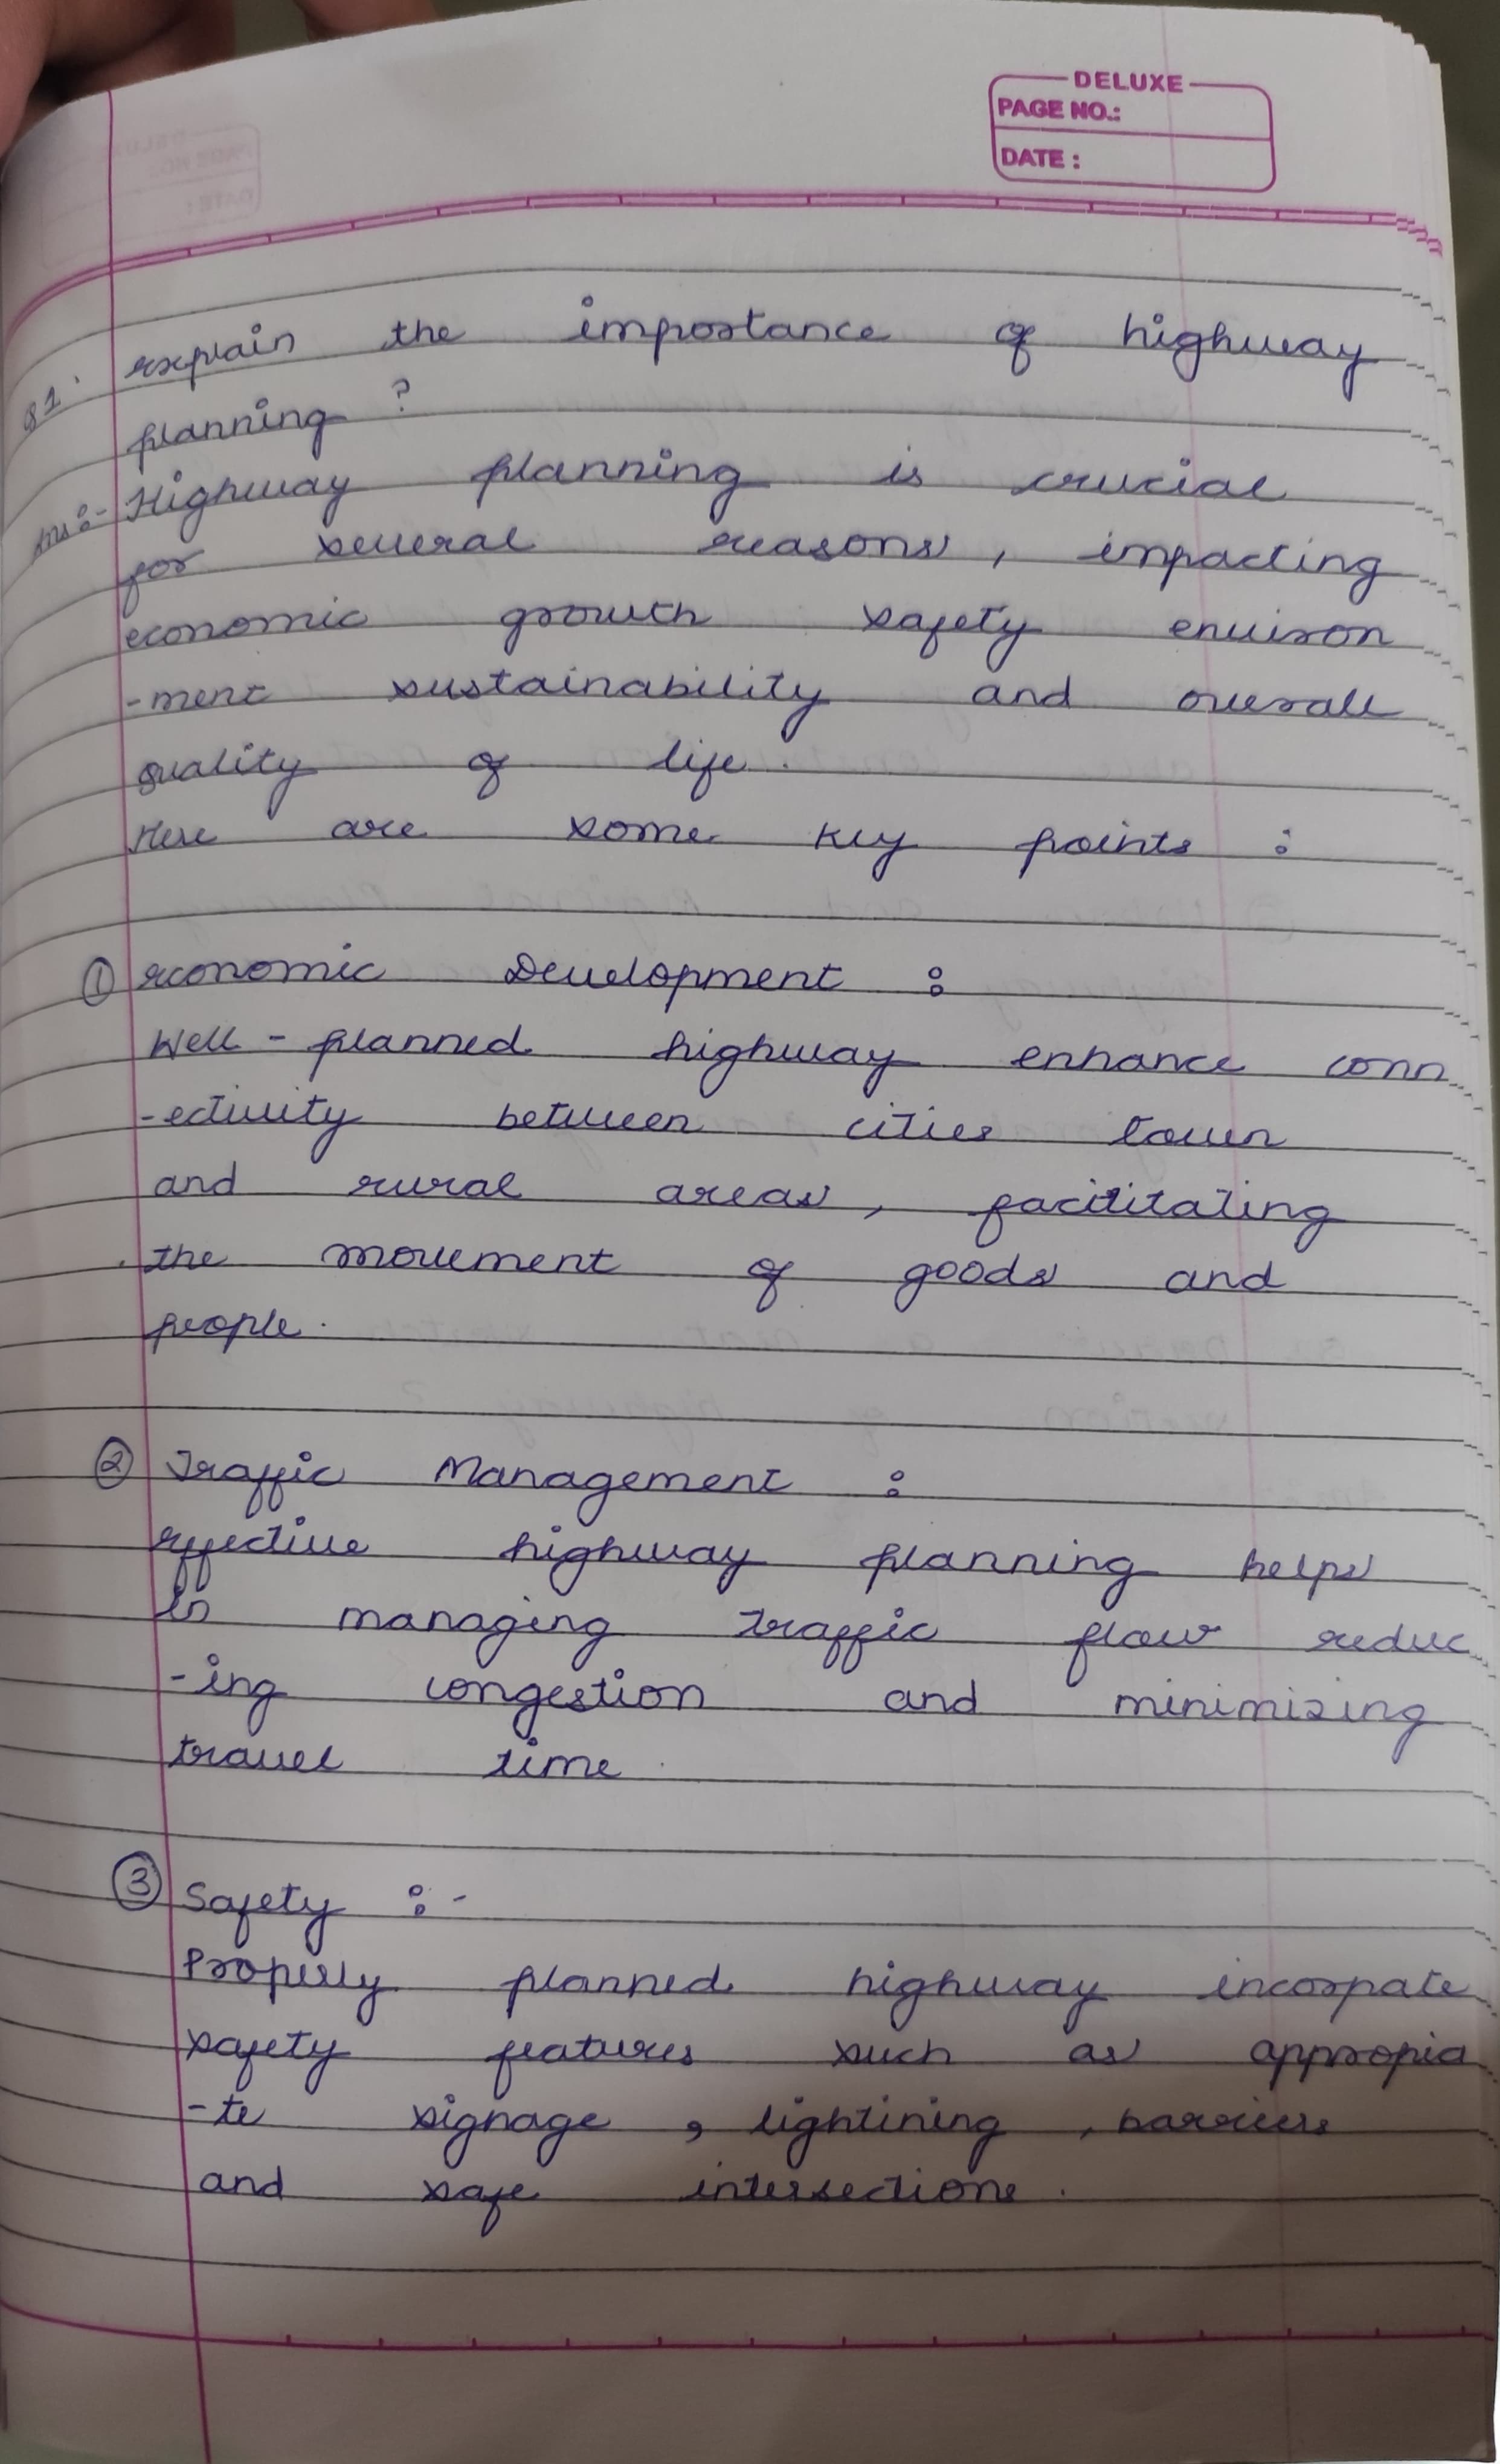 DELUXE
PAGE NO.:
DATE :
Q1. explain the importance of highway
planning ?
Ans:- Highway planning is crucial
for several reasons, impacting
economic growth safety environ
-ment sustainability and overall
quality of life.
Here are some key points :
① economic Development :
Well - planned highway enhance conn
-ectivity between cities town
and rural areas, facititating
the movement of goods and
people.
② Traffic Management :
effective highway planning helps
in managing traffic flow reduc
-ing congestion and minimizing
travel time.
③ Safety :-
Properly planned highway incorpate
safety features such as appropia
-te signage , lightining , barriers
and safe intersections.